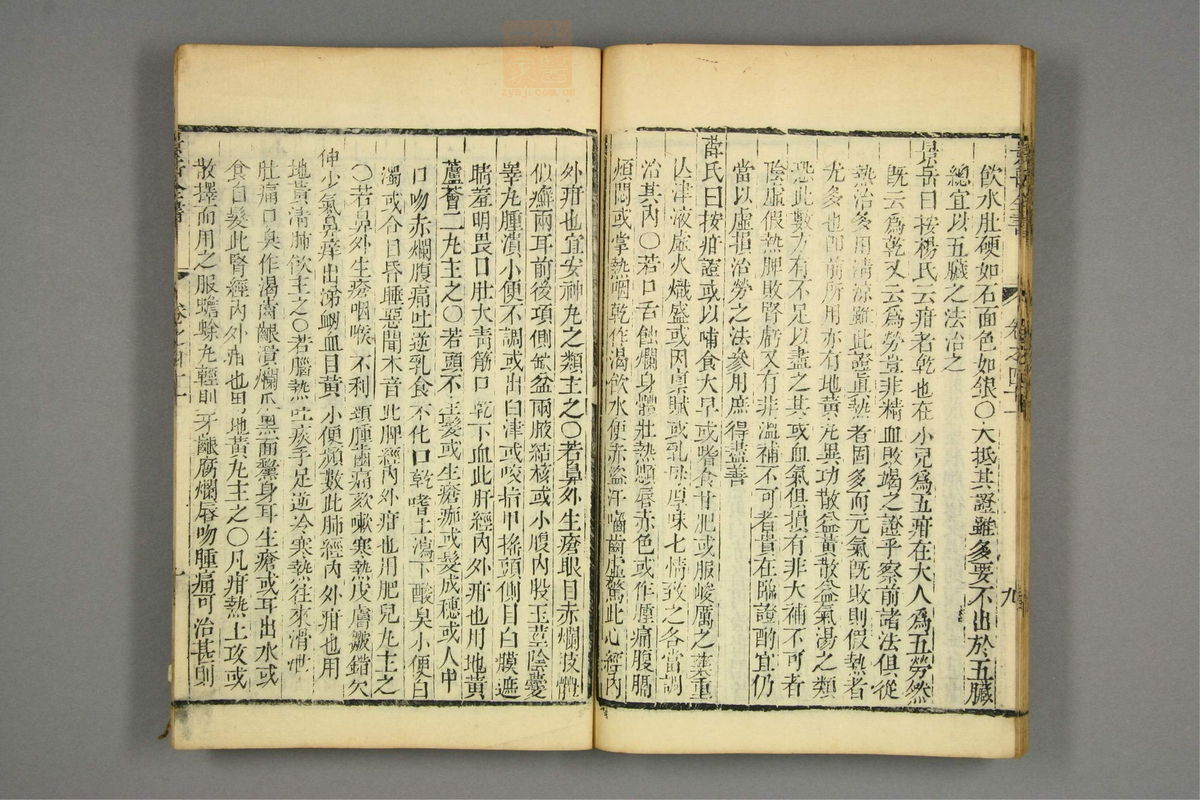 飲水肚硬如石面色如銀〇大抵其證雖多要不出於五臟
總宜以五臟之法治之
景岳曰按楊氏云疳者乾也在小兒爲五疳在大人爲五勞然
既云爲乾又云爲勞豈非精血敗竭之證乎察前諸法但從
熱治多用清涼雖此證眞熱者固多而元氣既敗則假熱者
尤多也即前所用亦有地黃丸異功散益黃散益氣湯之類
恐此數方有不足以盡之其或血氣俱損有非大補不可者
陰虛假熱脾敗腎虧又有非溫補不可者貴在臨證酌宜仍
當以虛損治勞之法參用庶得盡善
薛氏曰按疳證或以哺食太早或嗜食甘肥或服峻厲之藥重
亾津液虛火熾盛或因禀賦或乳母厚味七情致之各當調
治其內〇若口舌蝕爛身體壯熱顋唇赤色或作腫痛腹膈
煩悶或掌熱咽乾作渴飲水便赤盜汗嚙齒虛驚此心經內
外疳也宜安神丸之類主之〇若鼻外生瘡眼目赤爛肢體
似癬兩耳前後項側缺盆兩腋結核或小腹內股玉莖陰囊
睪丸腫潰小便不調或出白津或咬指甲搖頭側目白膜遮
睛羞明畏日肚大青筋口乾下血此肝經內外疳也用地黃
蘆薈二丸主之〇若頭不生髮或生瘡痂或髮成穗或人中
口吻赤爛腹痛吐逆乳食不化口乾嗜土瀉下酸臭小便白
濁或合目昏睡惡聞木音此脾經內外疳也用肥兒丸主之
〇若鼻外生瘡咽喉不利頸腫齒痛欬嗽寒熱皮膚皺錯欠
伸少氣鼻痒出涕衂血目黃小便頻數此肺經內外疳也用
地黃清肺飲主之〇若腦熱吐痰手足逆冷寒熱往來滑泄
肚痛口臭作渴齒齦潰爛爪黑面黧身耳生瘡或耳出水或
食自髮此腎經內外疳也用地黃丸主之〇凡疳熱上攻或
敷擇而用之服蟾蜍丸輕則牙齦腐爛唇吻腫痛可治甚則
景岳全書
卷之四十一
九